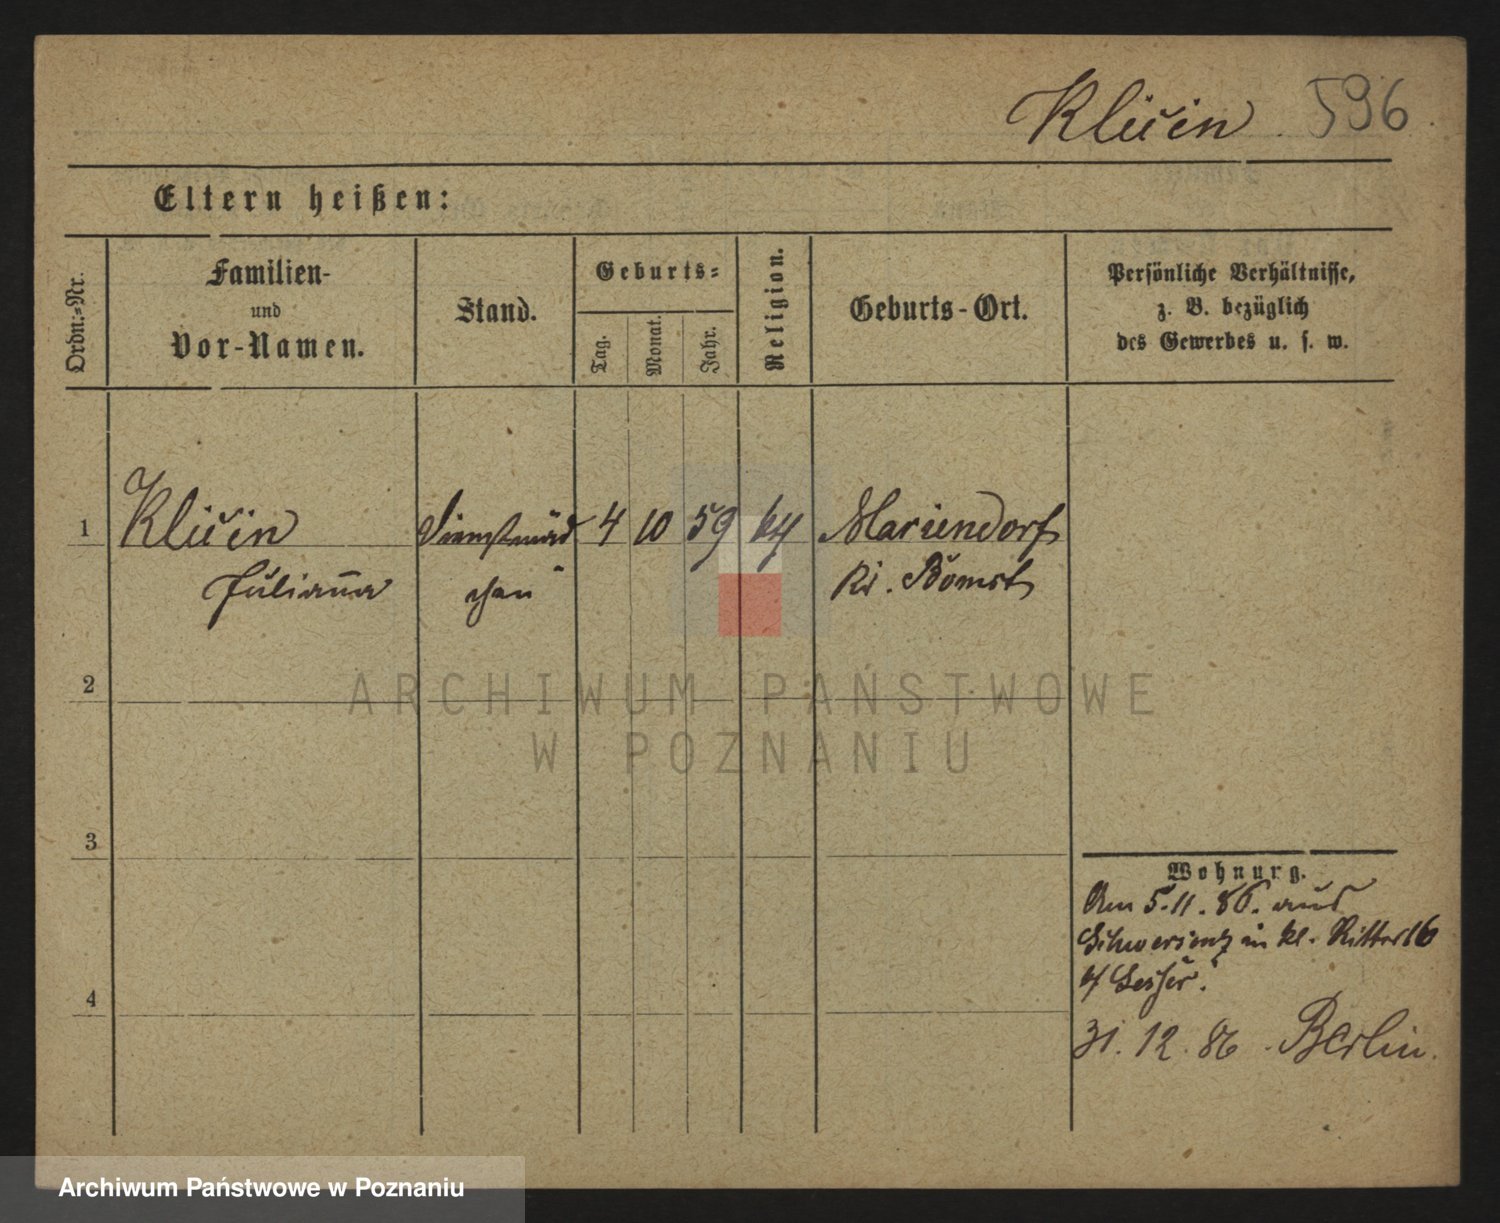 Kličin 596
Eltern heißen:
Ordn.-Nr.
Familien-
und
Vor-Namen.
Stand.
Geburts-
Tag.
Monat.
Jahr.
Religion.
Geburts-Ort.
Persönliche Verhältnisse,
z. B. bezüglich
des Gewerbes u. s. w.
1 Kličin Dienstmäd 4 10 59 Mariendorf
Juliana chen Kr. Bomst
2
ARCHIWUM PAŃSTWOWE
W POZNANIU
3
Wohnung.
Am 5.11.86. aus
Schwersenz in kl. Ritterst 6
31.12.86. Berlin.
4
Archiwum Państwowe w Poznaniu